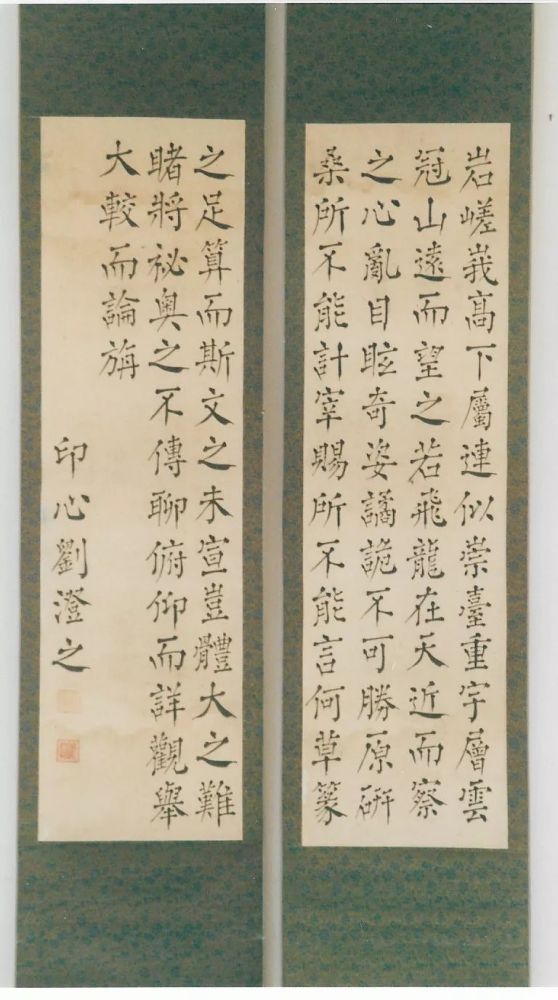 岩嵯峩高下屬連似崇臺重宇層雲
冠山遠而望之若飛龍在天近而察
之心亂目眩奇姿譎詭不可勝原研
桑所不能計宰賜所不能言何草篆
之足算而斯文之未宣豈體大之難
睹將祕奧之不傳聊俯仰而詳觀舉
大較而論旃
印心劉澄之